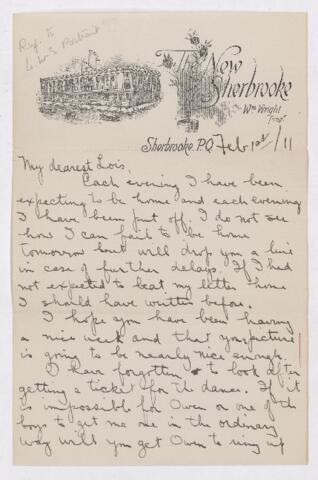 Ref. to
L. W's Portrait
The New
Sherbrooke
Wm Wright
Prop.
Sherbrooke, P.Q. Feb 1st / 11
My dearest Lois,
Each evening I have been
expecting to be home and each evening
I have been put off. I do not see
how I can fail to be home
tomorrow but will drop you a line
in case of further delays. If I had
not expected to beat my letter home
I should have written before.
I hope you have been having
a nice week and that your picture
is going to be nearly nice enough.
I have forgotten to look after
getting a ticket for the dance. If it
is impossible for Owen or one of the
boys to get me one in the ordinary
way will you get Owen to ring up